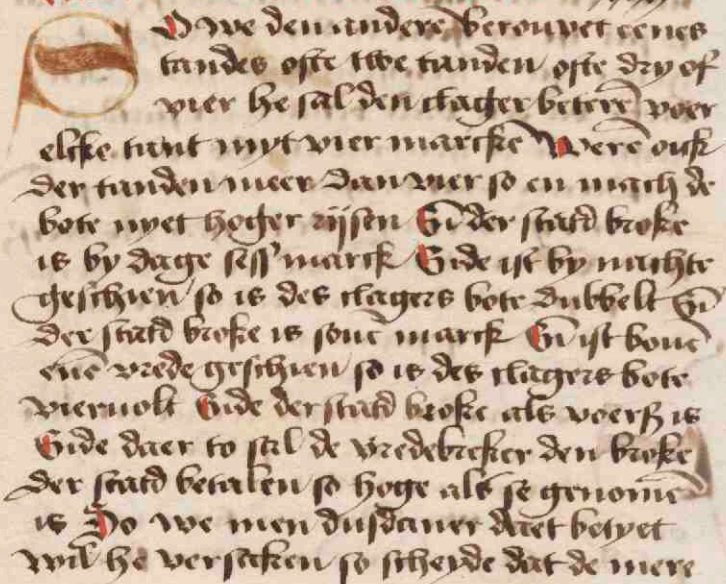 So we den andere berouvet eenes
tandes ofte twe tanden ofte dry of
vier he sal den clager beterē voer
elcke tant myt vier marcke Werē ouck
der tanden meer dan vier so en mach de
bote nyet hoger rijsen Eñ der stad broke
is by dage sess marck Eñde ist by nachte
geschien so is des clagers bote dubbelt Eñ
der stad broke is souē marck Eñ ist bouē
enē vrede geschien so is des clagers bote
viervolt Eñde der stad broke als voerß is
Eñde daer to sal de vredebreker den broke
der stad betalen so hoge als se genomē
is So we men dusdaner daet betyet
wil he versaken so scheyde dat de mere